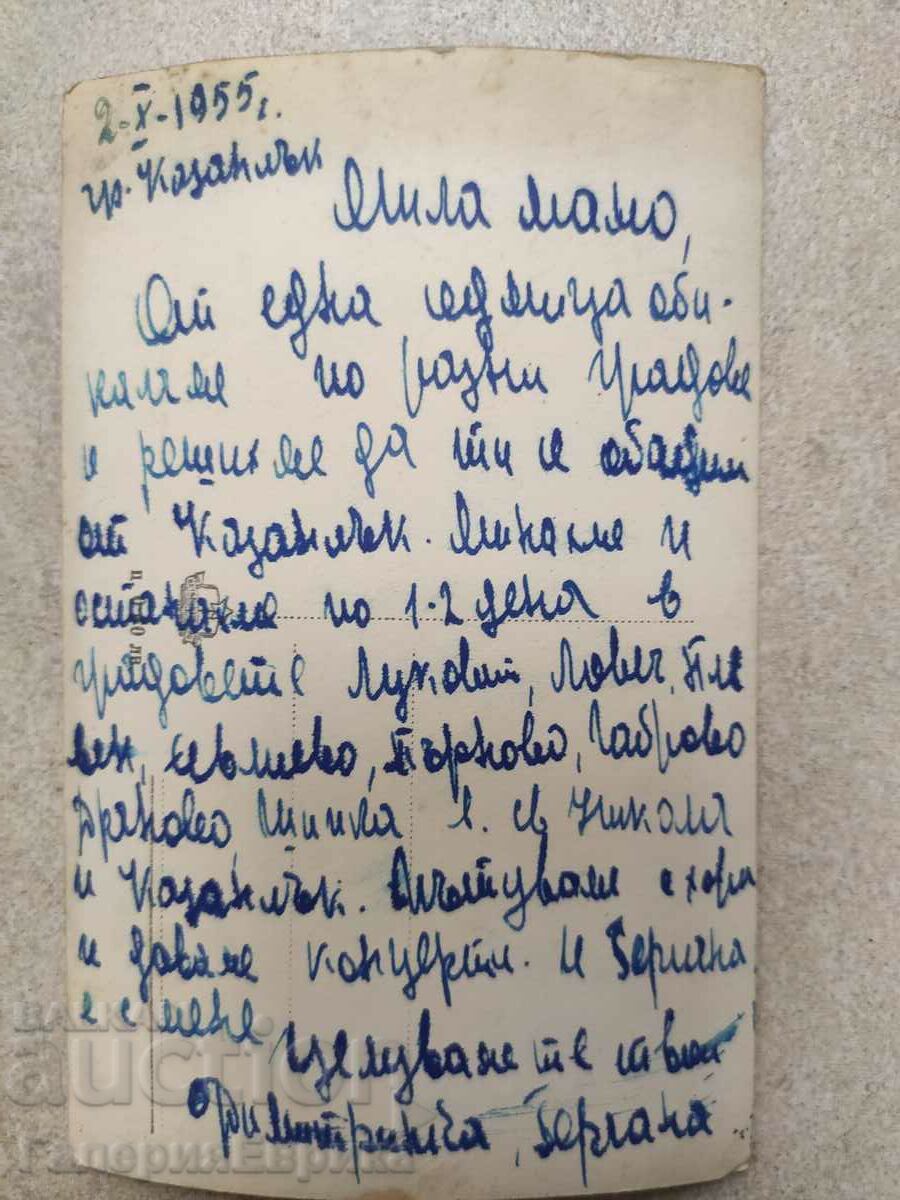 2-X-1955 г.
гр. Казанлък
Мила мамо,
От една седмица оби-
каляме по разни градове
и решихме да ти се обадим
от Казанлък. Минахме и
останахме по 1-2 дена в
градовете Луковит, Ловеч, Пле
вен, Севлиево, Търново, Габрово
Дряново Шипка в. св Никола
и Казанлък. Пътуваме с хора
и даваме концерти. И Бериана
е с мене
Целуваме те твои
Димитринка,
ГалерияЕврика
auction